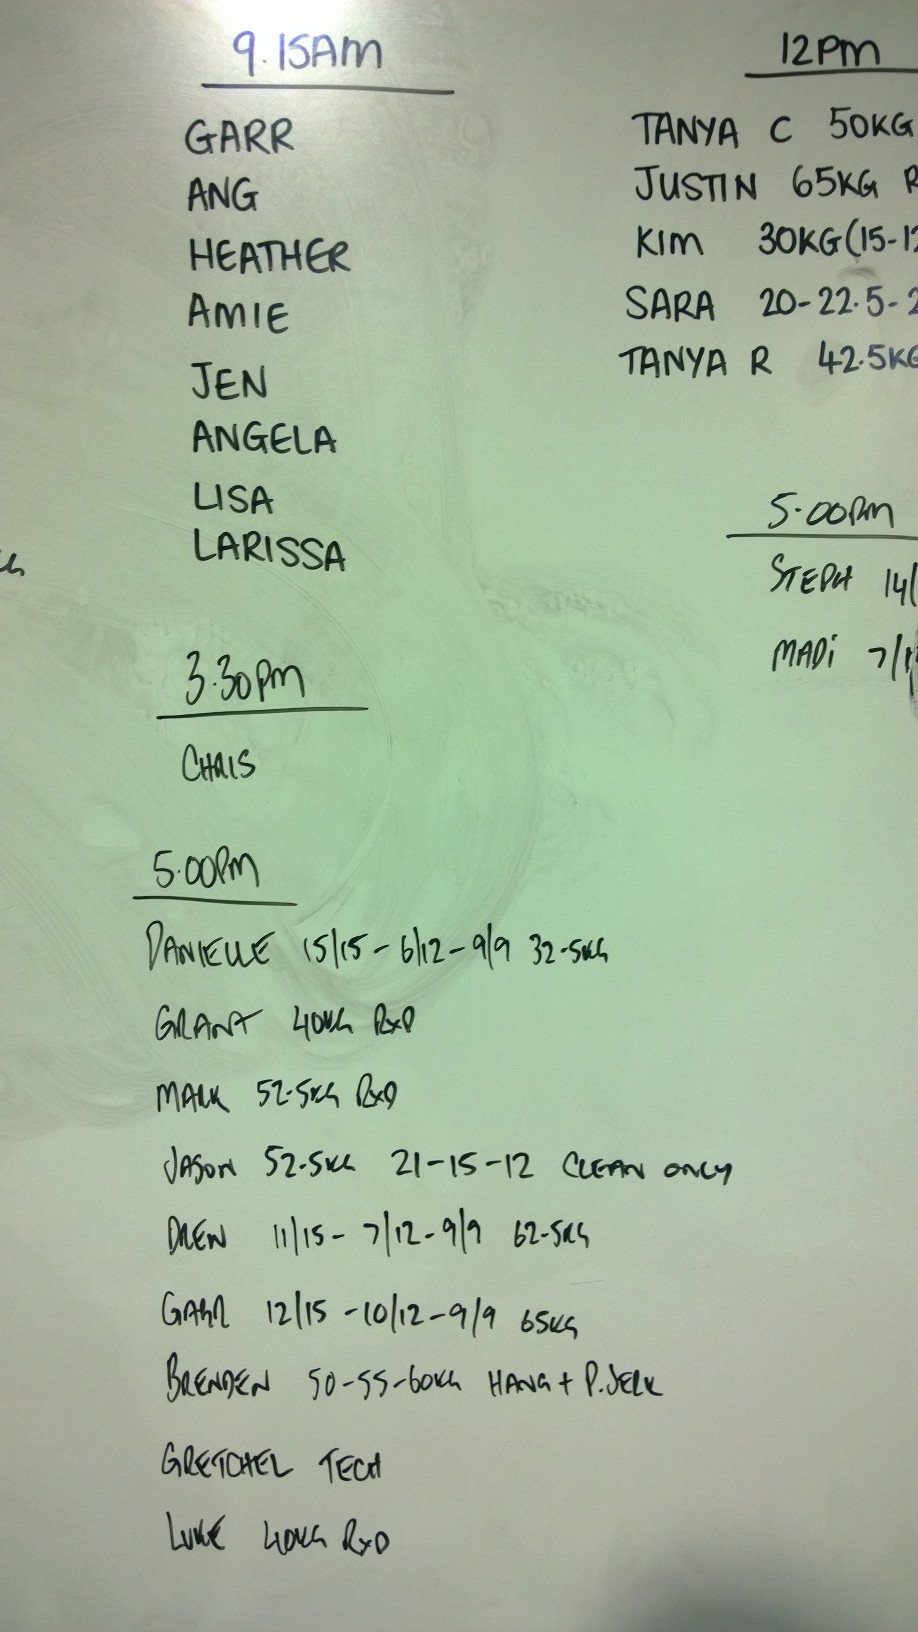 9.15AM
GARR
ANG
HEATHER
AMIE
JEN
ANGELA
LISA
LARISSA
3.30PM
CHRIS
5.00PM
DANIELLE 15/15 - 6/12 - 9/9 32.5KG
GRANT 40KG RXD
MARK 52.5KG RXD
JASON 52.5KG 21-15-12 CLEAN ONLY
DREW 11/15 - 7/12 - 9/9 62.5KG
GARR 12/15 - 10/12 - 9/9 65KG
BRENDEN 50-55-60KG HANG + P.JERK
GRETCHEL TECH
LUKE 40KG RXD
12PM
TANYA C 50KG
JUSTIN 65KG R
KIM 30KG (15-12
SARA 20-22.5-2
TANYA R 42.5KG
5.00PM
STEPH 14/
MADi 7/1